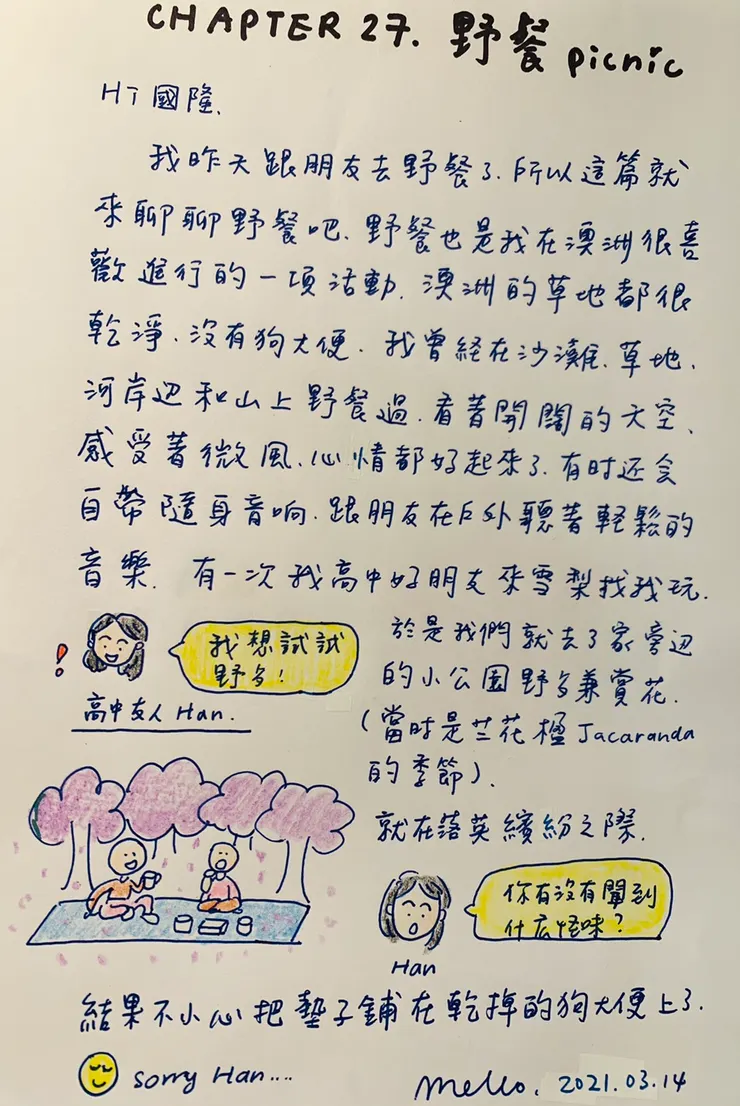 CHAPTER 27. 野餐 picnic
HI 國隆.
我昨天跟朋友去野餐了.所以這篇就
來聊聊野餐吧.野餐也是我在澳洲很喜
歡進行的一項活動.澳洲的草地都很
乾淨.沒有狗大便.我曾経在沙灘.草地.
河岸辺和山上野餐過.看著開闊的天空、
感受著微風.心情都好起來了.有时还会
自帶隨身音响.跟朋友在戶外聽著輕鬆的
音樂. 有一次我高中好朋友來雪梨找我玩.
!
我想試試
野歺!
高中友人 Han.
於是我們就去了家旁辺
的小公園野歺兼賞花.
(當时是兰花楹 Jacaranda
的季節).
就在落英繽紛之際.
你有沒有聞到
什么怪味?
Han
結果不小心把墊子鋪在乾掉的狗大便上了.
sorry Han....
Mello. 2021.03.14